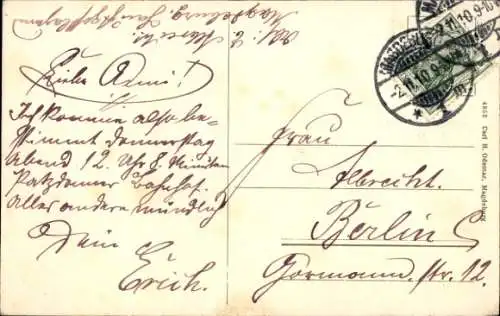 Magdeburg,
Liebe Anni!
Ich komme also be-
stimmt Donnerstag
Abend 12 Uhr 8 Minuten
Potzdamer Bahnhof.
Alles andere mündlich
Dein
Erich.
MAGDEBURG
-2.11.10.9-10
* 1 m
Frau
Albrecht.
Berlin C
Gormannstr. 12.
4353 Carl H. Odemar, Magdeburg